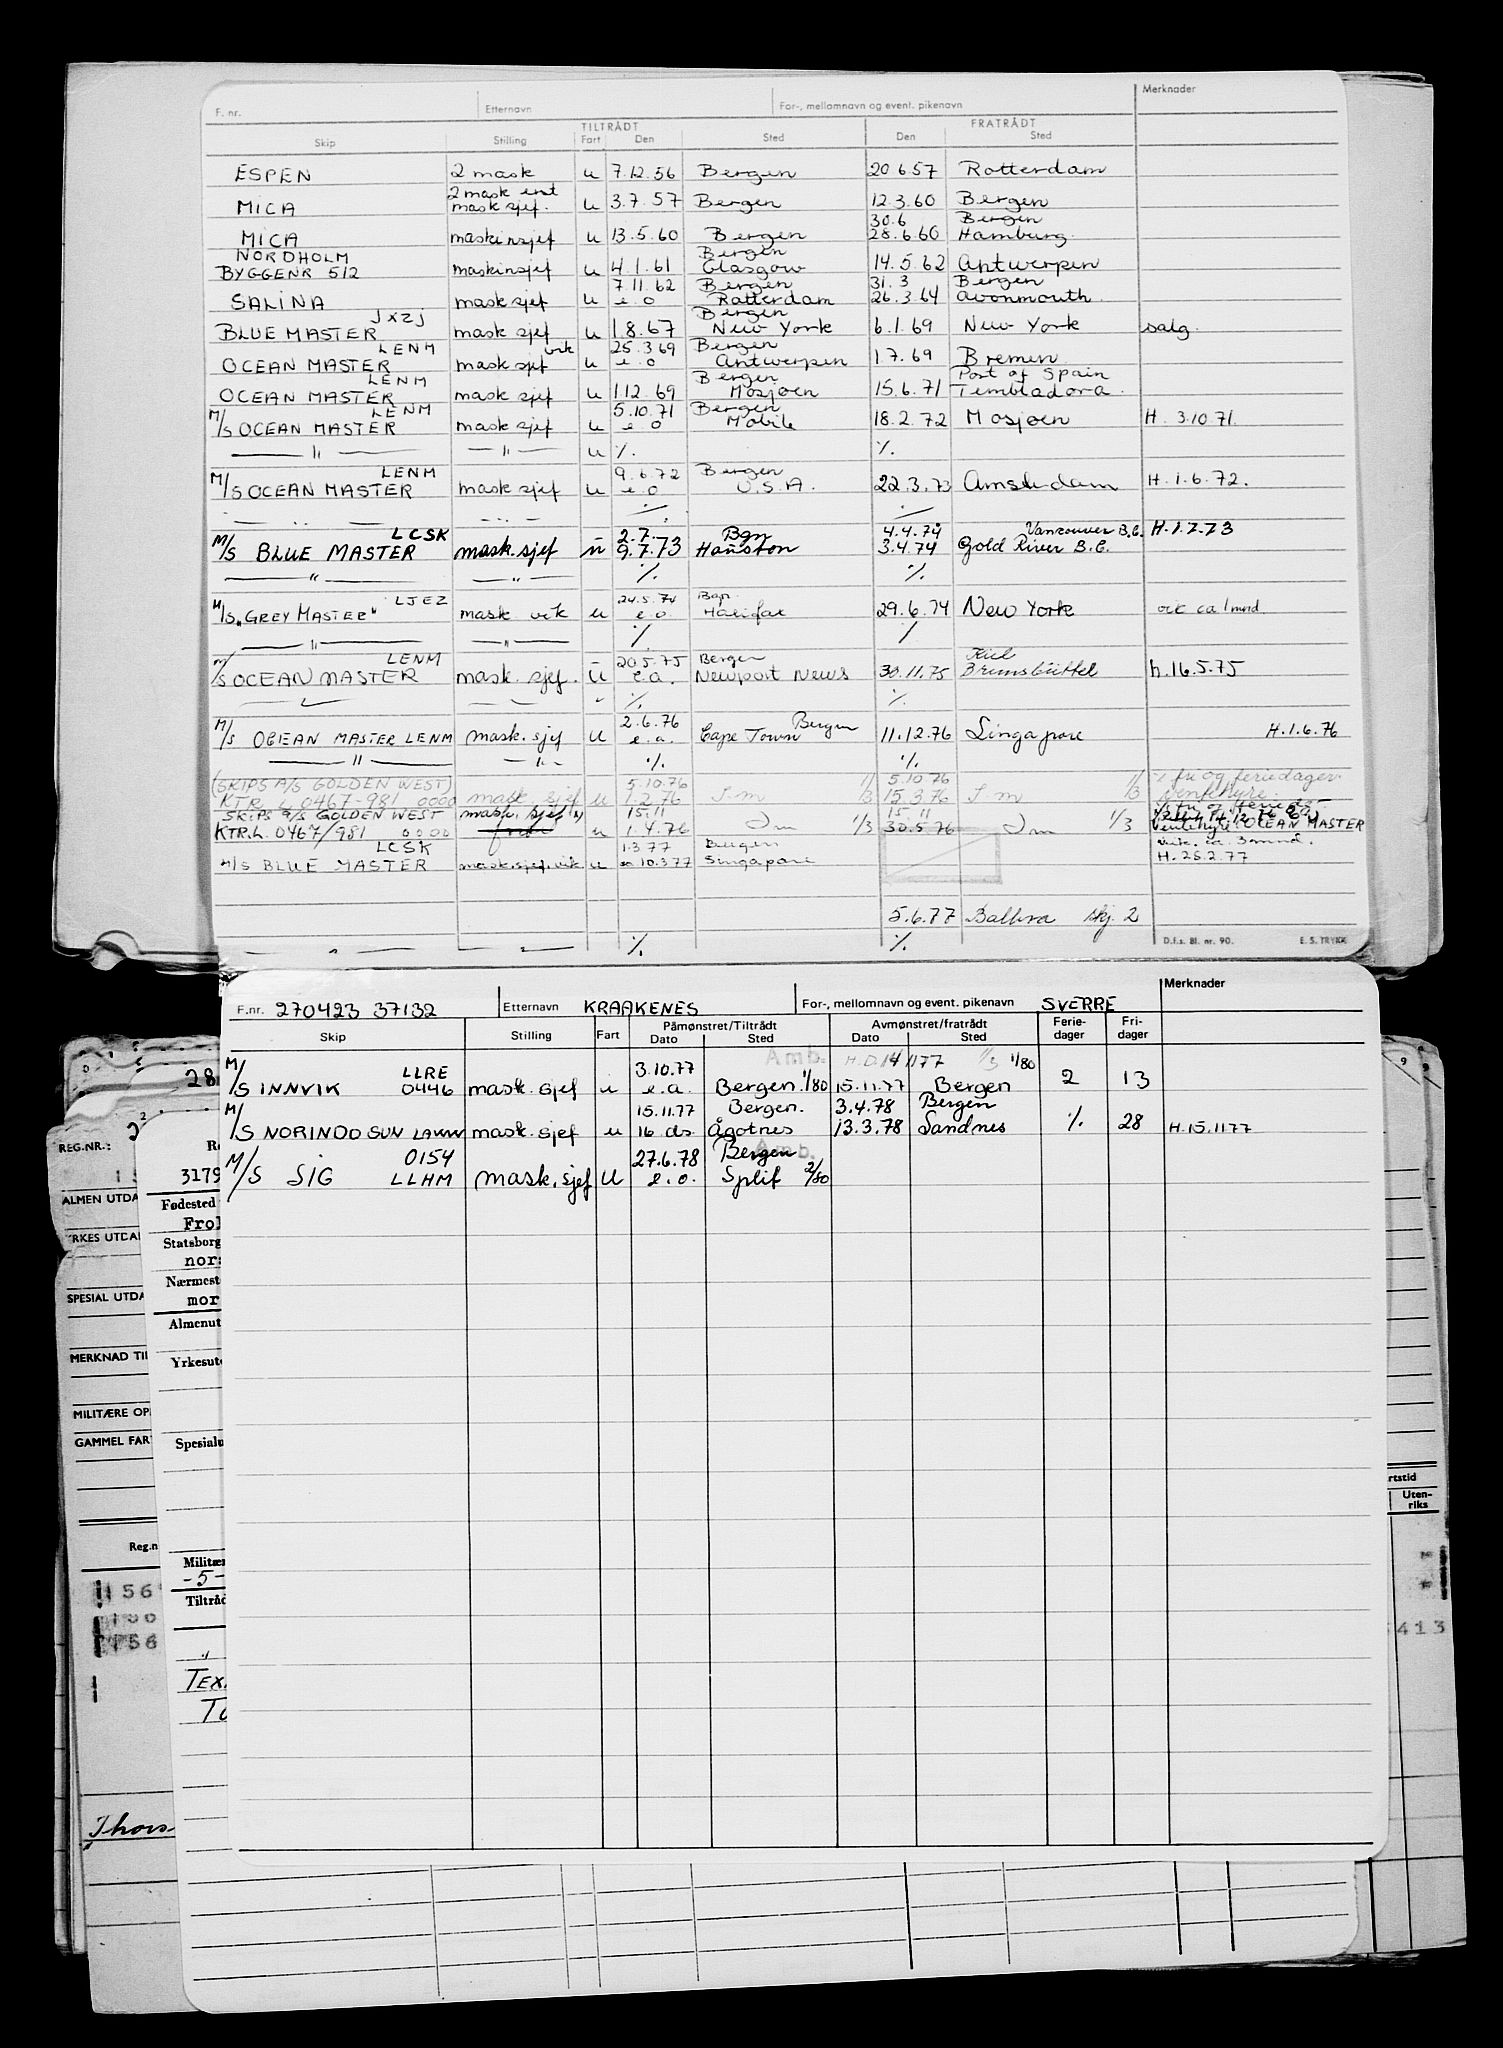 F. nr. Etternavn For-, mellomnavn og event. pikenavn Merknader
TILTRÅDT FRATRÅDT
Skip Stilling Fart Den Sted Den Sted
ESPEN 2 mask u 7.12.56 Bergen 20 6 57 Rotterdam
2 mask
MICA mask sjef. u 3.7.57 Bergen 12.3.60 Bergen
30.6 Bergen
MICA maskinsjef u 13.5.60 Bergen 28.6.60 Hamburg
NORDHOLM Bergen
BYGGENR 512 maskinsjef u 4.1.61 Glasgow 14.5.62 Antwerpen
7.11.62 Bergen 31.3 Bergen
SALINA mask sjef u e.o Rotterdam 26.3.64 Avonmouth
JXZJ Bergen
BLUE MASTER mask sjef u 1.8.67 New York 6.1.69 New York salg.
LENM vik 25.3.69 Bergen
OCEAN MASTER mask sjef u e.o Antwerpen 1.7.69 Bremen
LENM Bergen Port of Spain
OCEAN MASTER mask sjef u 1.12.69 Mosjøen 15.6.71 Tembladora
LENM 5.10.71 Bergen
M/S OCEAN MASTER mask sjef u e.o Mobile 18.2.72 Mosjøen H. 3.10.71.
— " — — " — u %. %.
LENM 9.6.72 Bergen
M/S OCEAN MASTER mask sjef u e.o U.S.A. 22.3.73 Amsterdam H.1.6.72.
LCSK 2.7. Bgn 4.4.74 Vancouver B.C. H.1.7.73
M/S BLUE MASTER mask.sjef u 9.7.73 Houston 3.4.74 Gold River B.C.
— " — — " — %. %.
LJEZ 24.5.74 Bgn
M/S "GREY MASTER" mask vik u e.o. Halifax 29.6.74 New York vik ca 1 mnd.
— " — — " — %
LENM 20.5.75 Bergen Kiel
M/S OCEAN MASTER mask. sjef. u e.a. Newport News 30.11.75 Brunsbüttel h.16.5.75
%. %.
2.6.76 Bergen
M/S OCEAN MASTER LENM mask. sjef u e.a. Cape Town 11.12.76 Singapore H.1.6.76
— " — — " — %. %.
(SKIPS A/S GOLDEN WEST) 5.10.76 5.10.76 fri og feriedager
KTR L 0467-981 0000 mask sjef u 1.2.76 1/3 15.3.76 1/3 ventehyre.
SKIPS A/S GOLDEN WEST mask. sjef 15.11 15.11
KTR.L. 0467/981 0000 u 1.4.76 1/3 30.5.76 1/3 ventehyre OCEAN MASTER
LCSK 1.3.77 Bergen vik. ca. 3 mnd.
M/S BLUE MASTER mask.sjef. vik u 10.3.77 Singapore H. 25.2.77
5.6.77 Balboa skj. 2
%. %.
D.f.s. Bl. nr. 90. E. S. TRYKK
Merknader
F.nr. 270423 37132 Etternavn KRAAKENES For-, mellomnavn og event. pikenavn SVERRE
Skip Stilling Fart Påmønstret/Tiltrådt Avmønstret/fratrådt Ferie-dager Fri-dager
Dato Sted Dato Sted
Amb. 1/3 1/80
M/S INNVIK LLRE 0446 mask. sjef u 3.10.77 e.a. Bergen 1/80 15.11.77 Bergen 2 13
15.11.77 Bergen. 3.4.78 Bergen
M/S NORINDO SUN mask. sjef u 16 ds Ågotnes 13.3.78 Sandnes %. 28 H.15.11.77
0154 27.6.78 Bergen
M/S SIG LLHM mask. sjef u e.o. Split 2/80
REG.NR.:
3179
ALMEN UTDA
Fødested
Statsborg
nors
Nærmest
mor
SPESIAL UTDA
Almenut
MERKNAD TIL
Yrkesut
MILITÆRE OP
GAMMEL FART
Spesialu
rtstid
Uten-
riks
Reg.n
Militær
-5-
Tiltråd
156
413
156
Thors